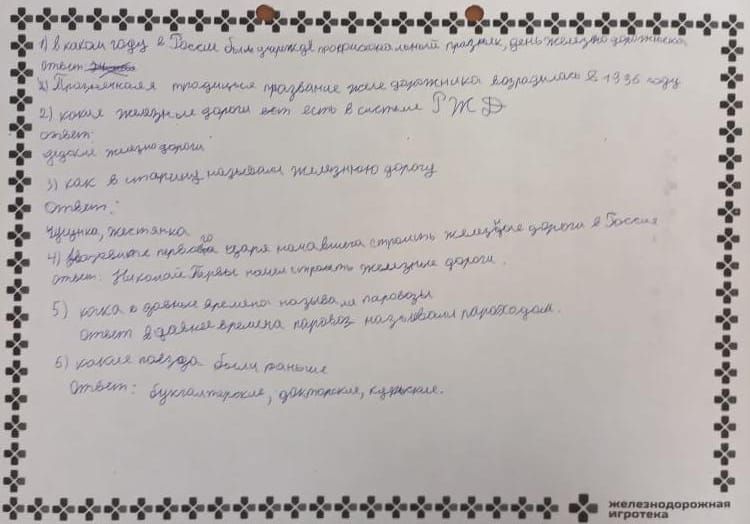 1) в каком году в России был учрежде профисиональный празник, день железно дорожника
ответ
2) Празничная традиция празвание желе дорожника возрадилась в 1936 году
2) какие железные дороги ест есть в системе РЖД
ответ:
децкие железно дороги
3) как в старину называли железнюю дорогу
Ответ:
чугунка, жестянка
4) первого царя начавшего строить железные дороги в России
ответ: Николай Первы начел строить железные дороги.
5) в давные времена называли паровозы
ответ в давнее времена паровоз называли пароходом.
6) какие поезда были раньше
Ответ: бухгалтерские, докторские,
железнодорожная
игротека